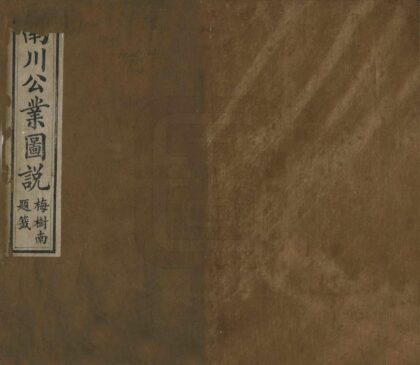 南川公業圖說
梅樹南
題籤